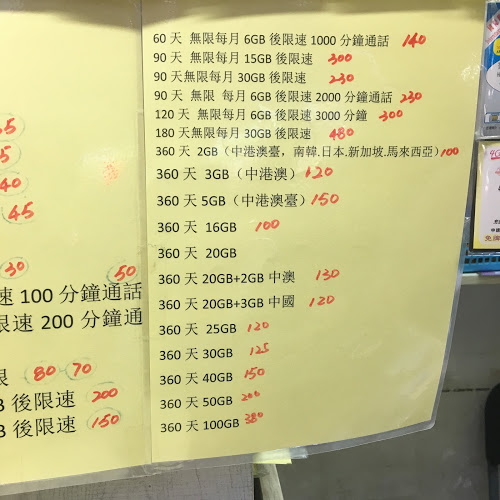 60 天 無限每月 6GB 後限速 1000 分鐘通話 140
90 天 無限每月 15GB 後限速 300
90 天無限每月 30GB 後限速 230
90 天 無限 每月 6GB 後限速 2000 分鐘通話 230
120 天 無限每月 6GB 後限速 3000 分鐘 300
180 天無限每月 30GB 後限速 480
360 天 2GB（中港澳臺，南韓.日本.新加坡.馬來西亞）100
360 天 3GB（中港澳）120
360 天 5GB（中港澳臺）150
360 天 16GB 100
360 天 20GB
360 天 20GB+2GB 中澳 130
360 天 20GB+3GB 中國 120
360 天 25GB 120
360 天 30GB 125
360 天 40GB 150
360 天 50GB 200
360 天 100GB 380
40
45
30 50
速 100 分鐘通話
限速 200 分鐘通
限 80 70
B 後限速 200
B 後限速 150